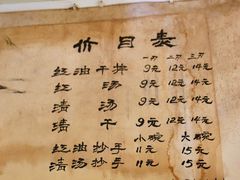 价目表
一刃 二刃 三刃
红油干拌 9元 12元 14元
红汤 9元 12元 14元
清汤 9元 12元 14元
清干 9元 12元 14元
小碗 大碗
红油抄手 11元 15元
清汤抄手 11元 15元